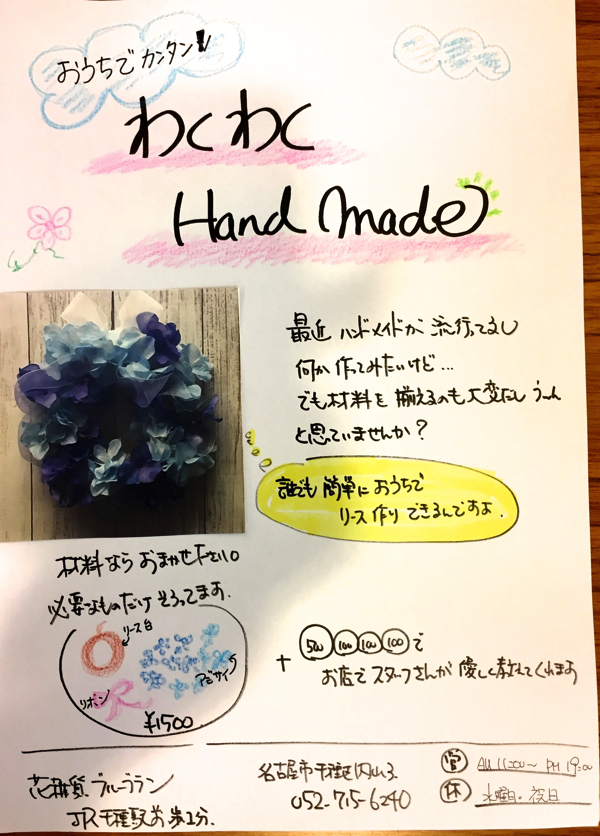 おうちでカンタン!
わくわく
Hand Made
最近 ハンドメイドが 流行ってるし
何か作ってみたいけど…
でも材料を揃えるのも大変だし うーん
と思っていませんか?
誰でも簡単におうちで
リース作りできるんですよ.
材料なら おまかせ下さい。
必要なものだけ そろってます.
リース台
アジサイ
リボン
¥1500
+ 500 100 100 100 で
お店でスタッフさんが 優しく教えてくれます
花雑貨 ブルーグラン
JR千種駅 歩2分.
名古屋市千種区内山3
052-715-6240
営 AM 11:00〜 PM 19:00
休 水曜日・祝日